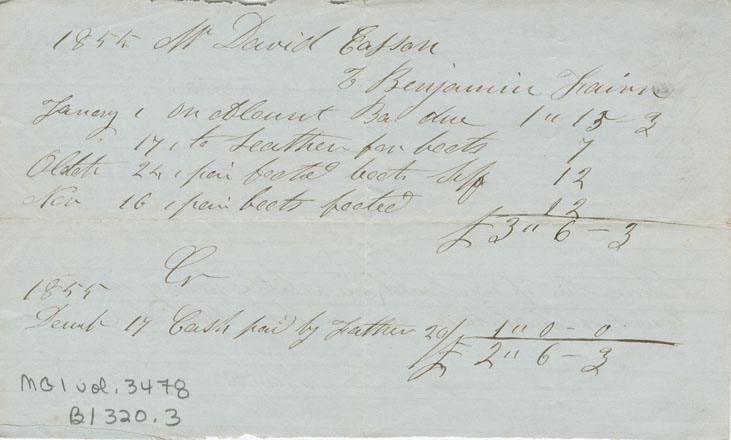 1855 Mr David Easson
To Benjamin Fairn
January 1 on Acount Ba due 1 " 15 - 3
" 17 , to Leather for boots 7
24 1 pair footed boots Self 12
Nov 16 1 pair boots footed 12
£ 3 " 6 - 3
Cr
1855
Decmb 17 Cash paid by Father 20/ 1 " 0 - 0
£ 2 " 6 - 3
MG1 vol. 3478
B1320.3